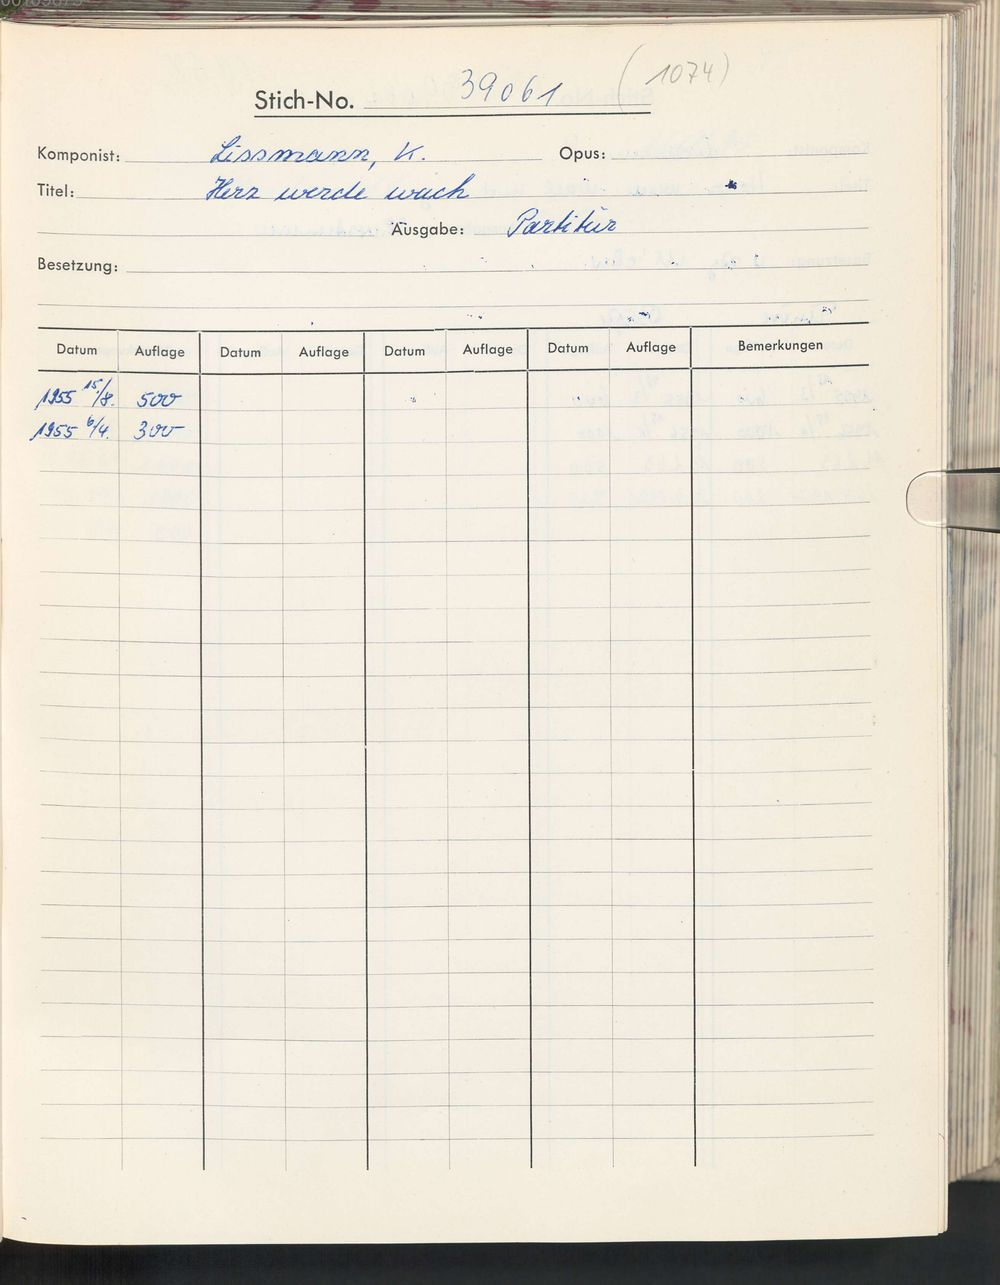 (1074)
Stich-No. 39061
Komponist: Lissmann, K. Opus:
Titel: Herz werde wach
Ausgabe: Partitur
Besetzung:
Datum Auflage Datum Auflage Datum Auflage Datum Auflage Bemerkungen
1955 15/8. 500
1955 6/4. 300